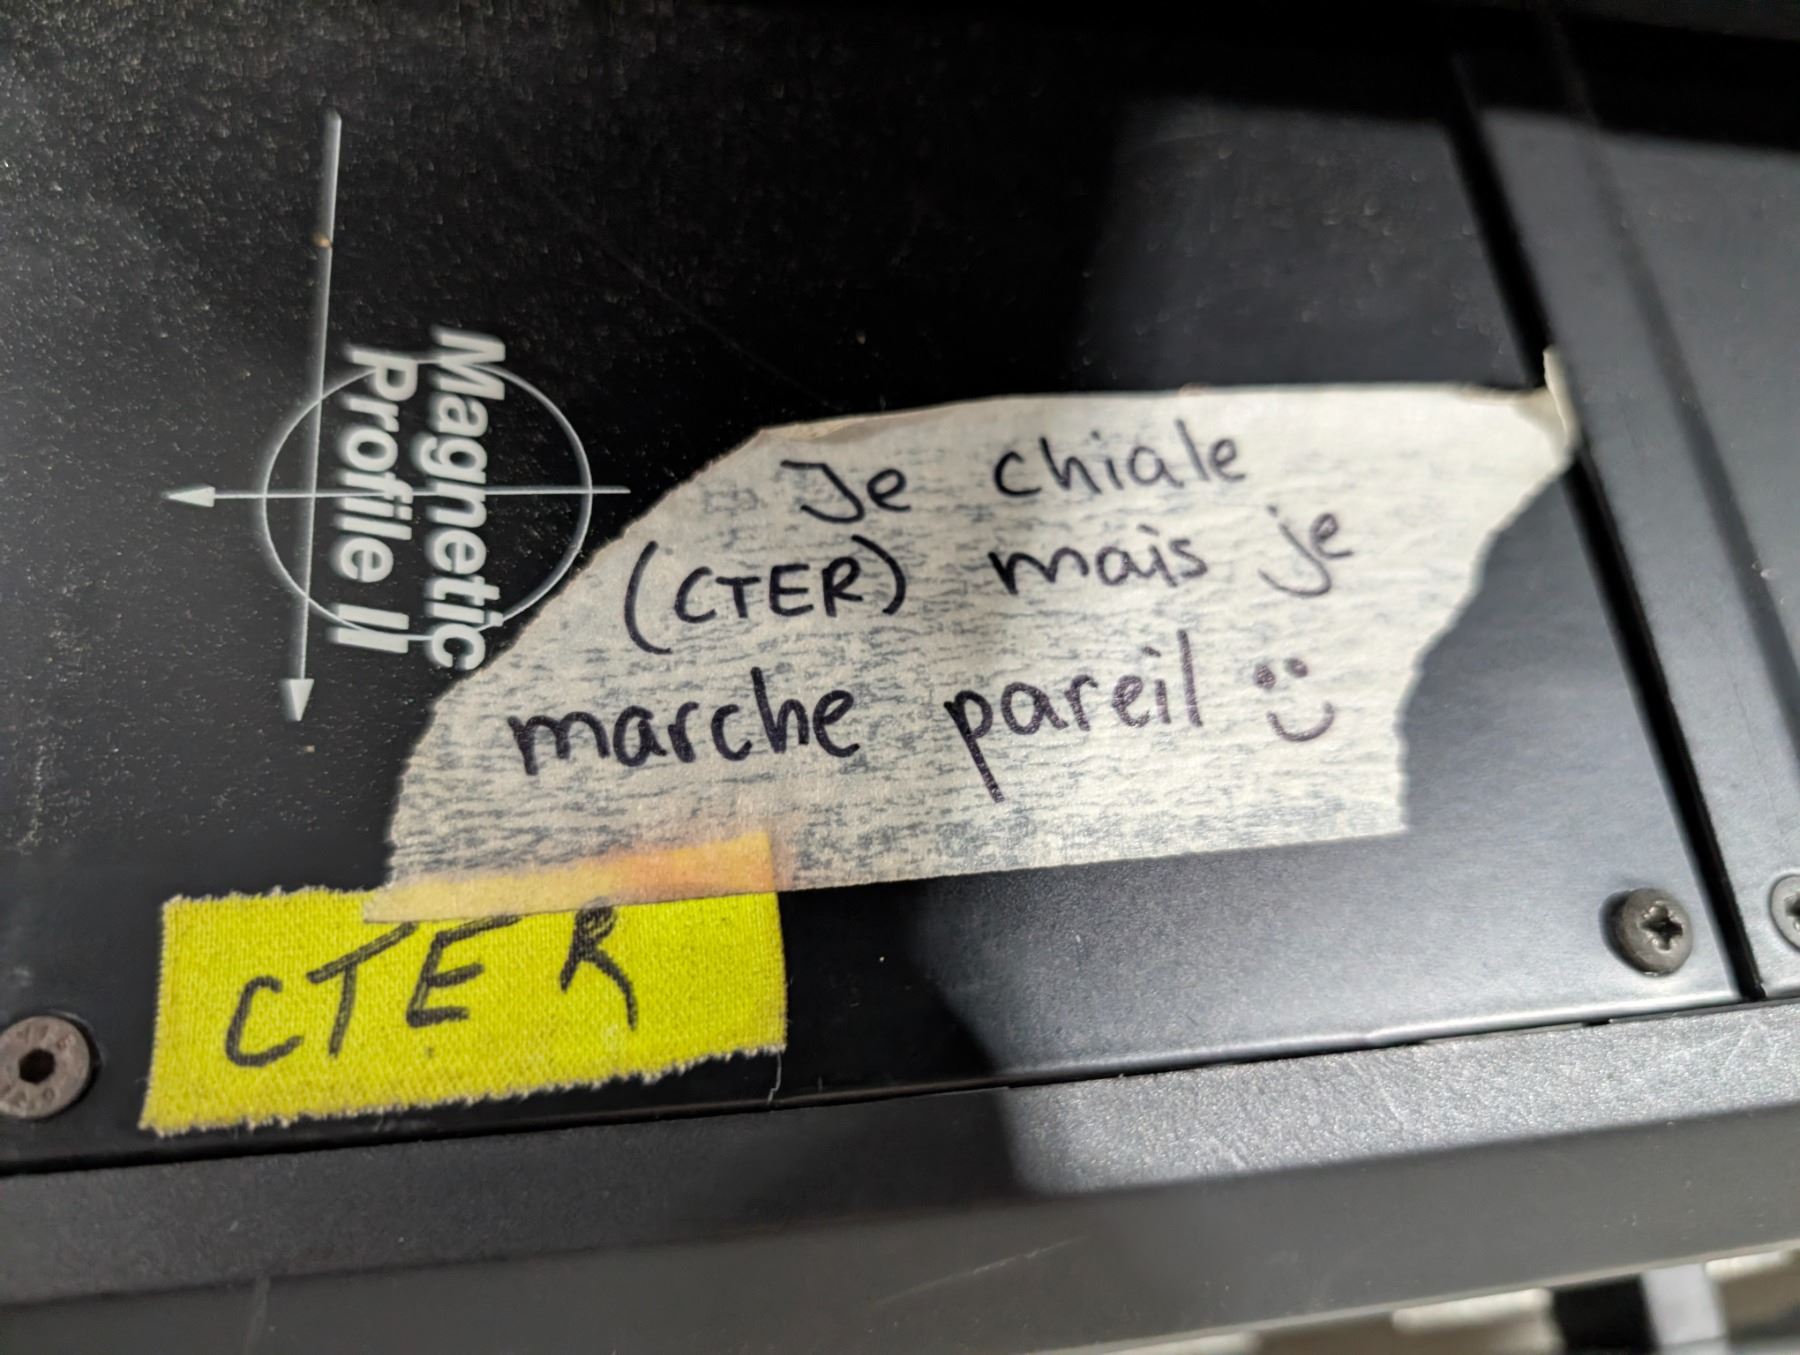 Magnetic
Profile II
Je chiale
(CTER) mais je
marche pareil
CTER